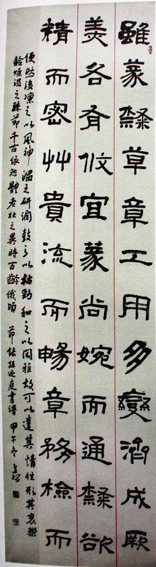 雖篆隸草章工用多變濟成厥
美各有攸宜篆尚婉而通隸欲
精而密艸貴流而暢章務檢而
便然後凜之以風神溫之以妍潤鼓之以枯勁和之以閑雅故可以達其情性形其哀樂
驗燥濕之殊節千古依然體老壯之異時百齡俄頃 節錄孫過庭書譜 甲午冬